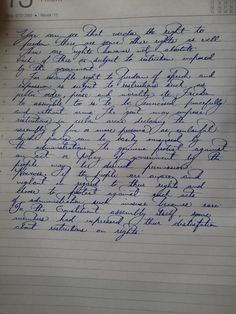 You can see that under the right to
freedom there are some other rights as well
These are rights however not absolute
Each of this is subject to restriction imposed
by the government
For example right to freedom of speech and
expression is subject to restrictions such as
public order, peace and morality etc. Freedom
to assemble too is to be exercised peacefully
and without arms. The govt. may impose
restrictions in certain areas declaring the
assembly of five or more persons as unlawful
by the administration. The genuine protest against
an act or policy of government by the
people may be denied permission.
However, if the people are aware and
vigilant in regard to their rights and
choose to protest against such acts
of administration such misuse becomes rare
In the Constituent assembly itself, some
members had expressed their dissatisfaction
about restrictions on rights.